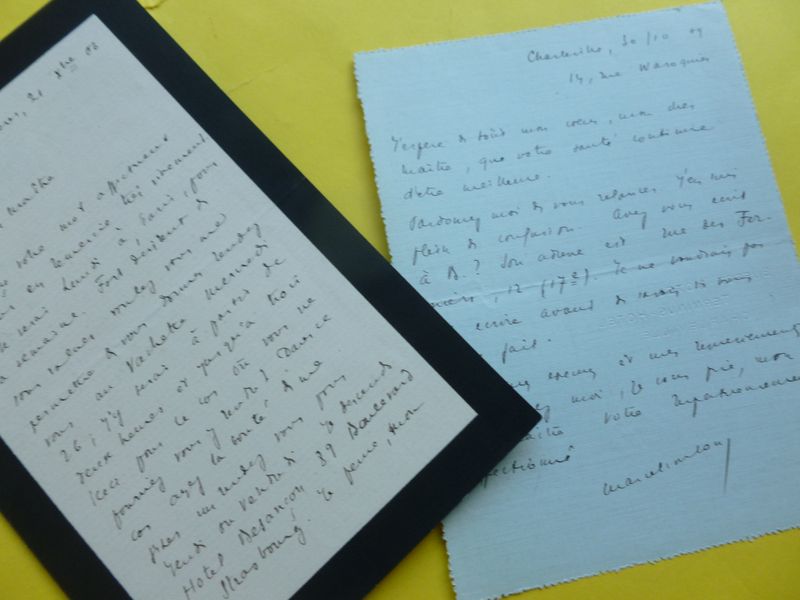 21 Xbre 06
maître
votre mot affectueux
en remercie très vivement
serai Lundi à Paris, pour
semaine. Fort désireux de
vous voulez vous me
permettre de vous donner rendez
vous au Vachette Mercredi
26 ; j'y serai à partir de
deux heures et jusqu'à trois
Ceci pour le cas où vous ne
pourriez vous y rendre ! Dans ce
cas ayez la bonté de me
fixer un rendez vous pour
Jeudi ou Vendredi. Je descends
Hôtel Besançon, 39 Boulevard
Strasbourg. Je pense, mon
Charleville, 30/10 09
14, rue Waroquier
J'espère de tout mon coeur, mon cher
maître, que votre santé continue
d'être meilleure.
Pardonnez moi de vous relancer. J'en suis
plein de confusion. Avez vous écrit
à B. ? Son adresse est rue des
12 (17e). Je ne voudrais pas
écrire avant de savoir si vous
fait.
et mes remerciements
moi, je vous prie, mon
maître votre
affectionné